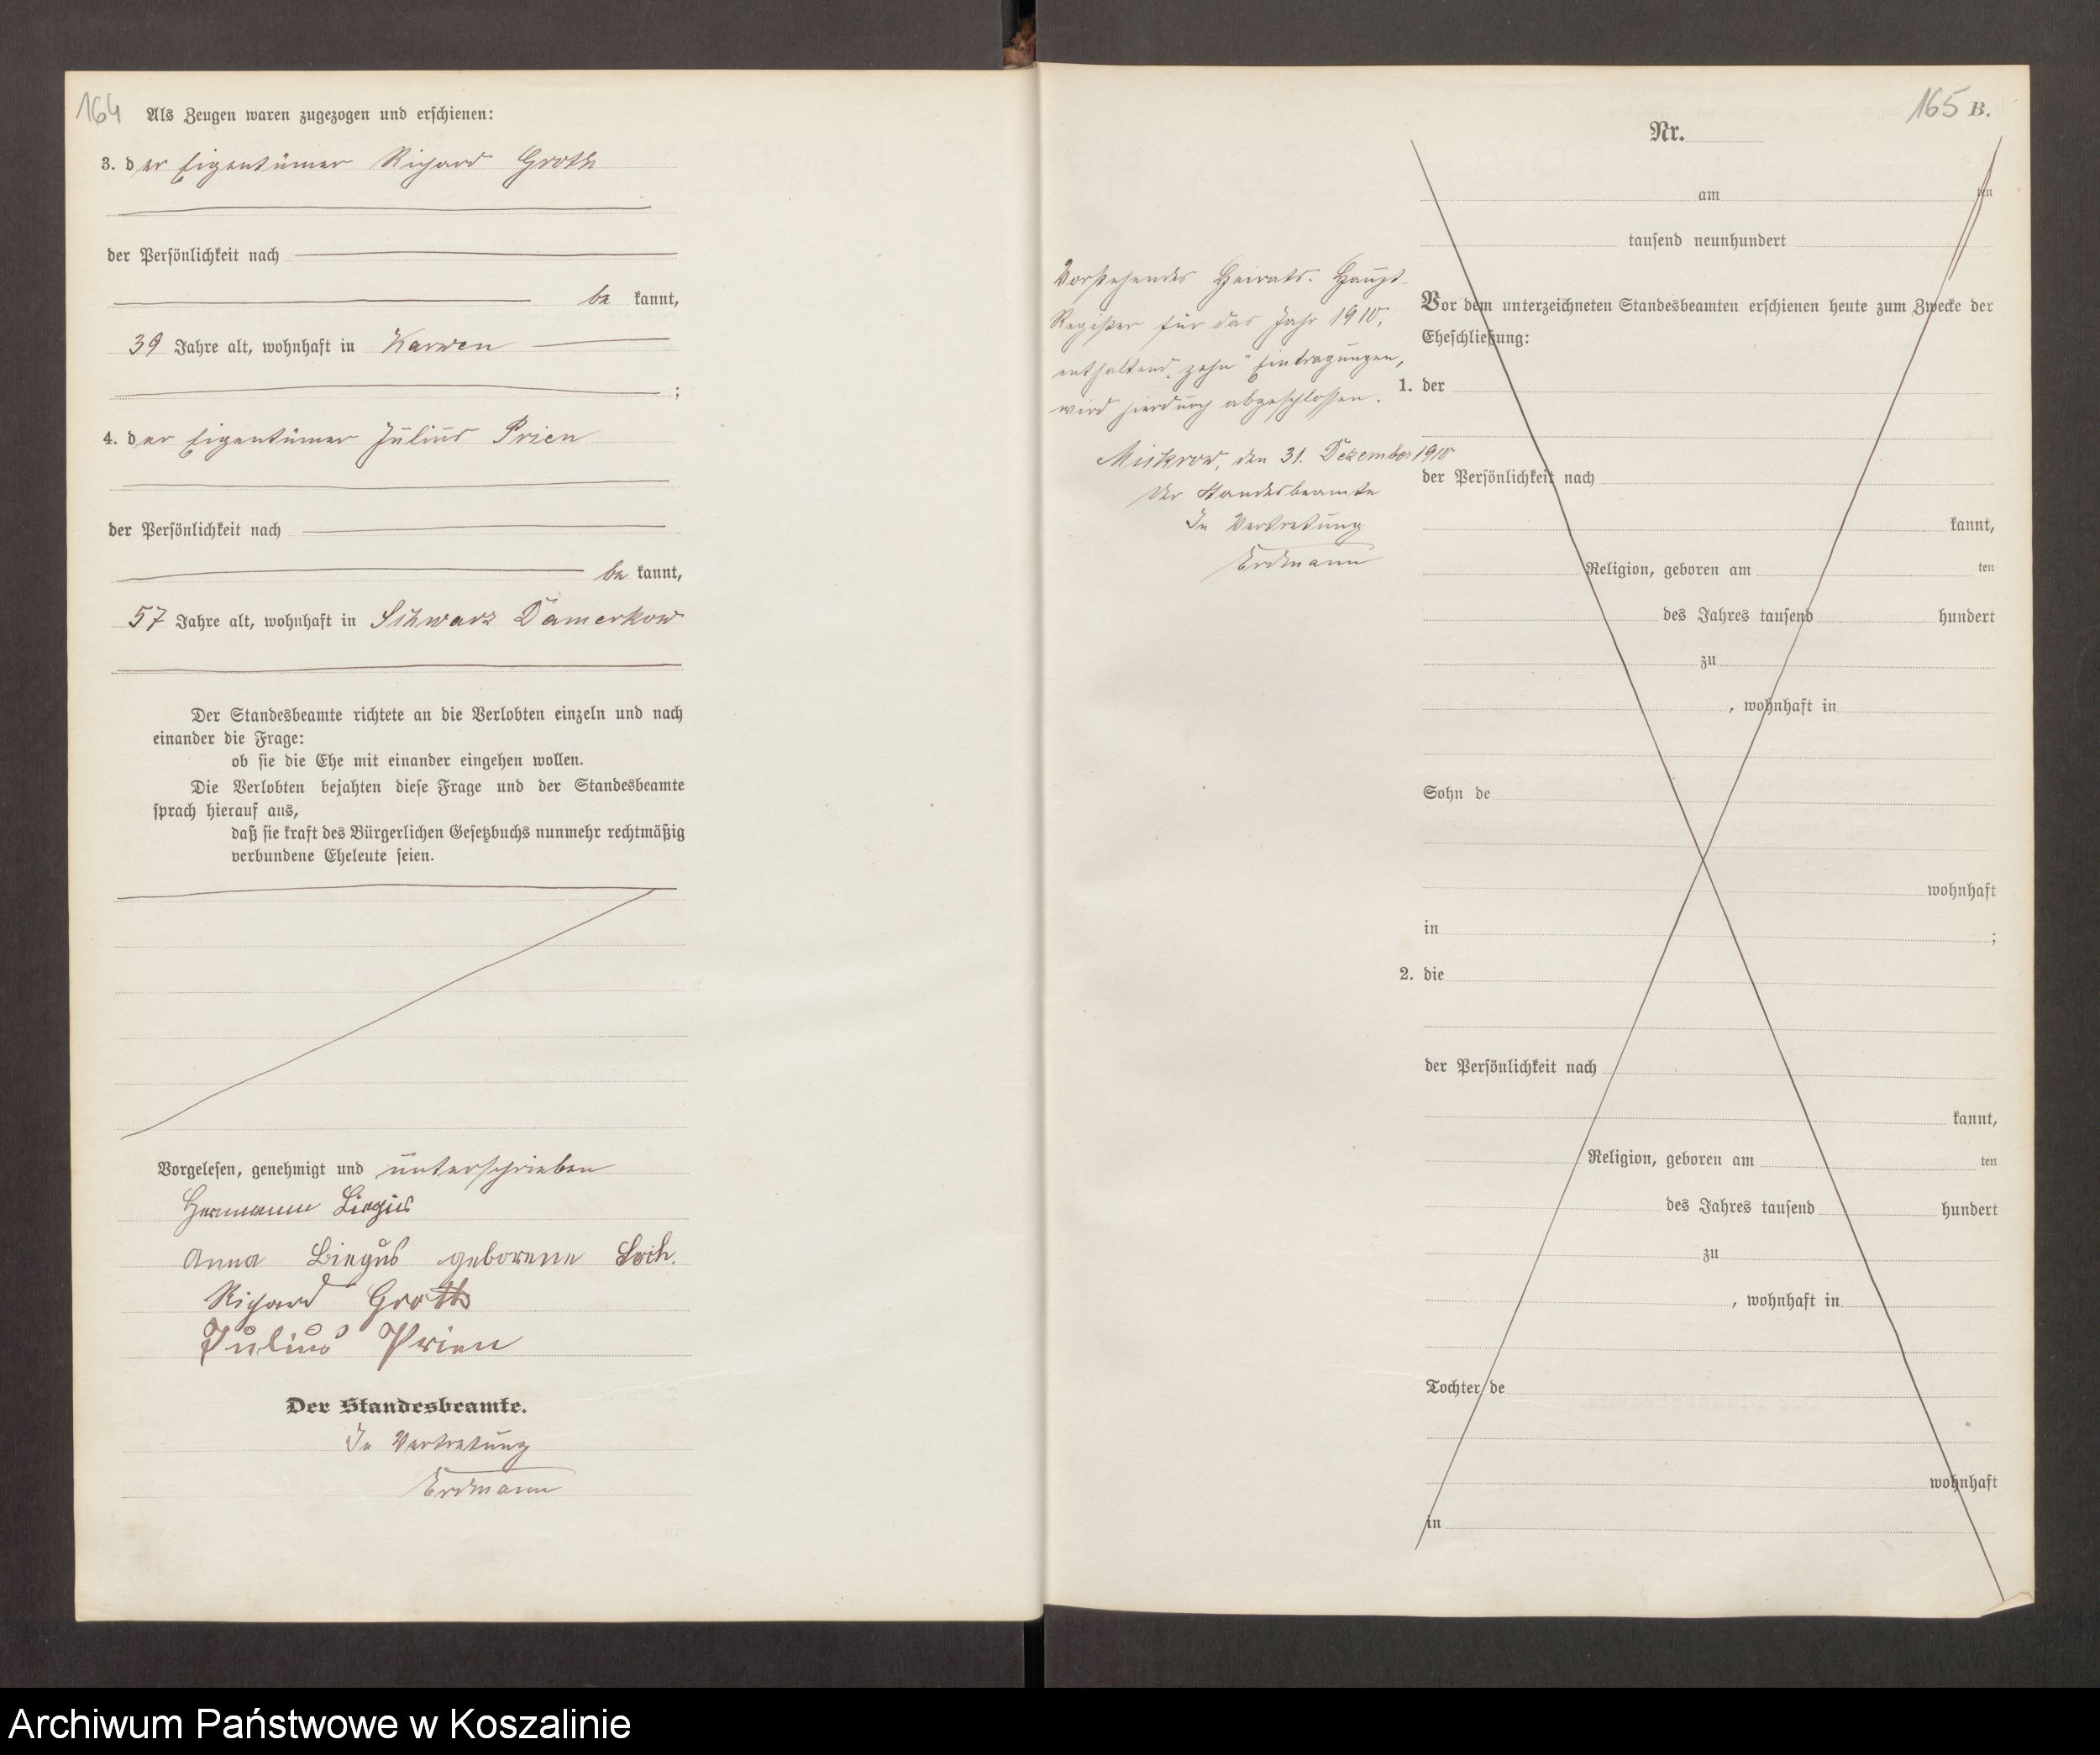 164
Als Zeugen waren zugezogen und erschienen:
3. der Eigentümer Richard Groth
der Persönlichkeit nach
be kannt,
39 Jahre alt, wohnhaft in Karwen
;
4. der Eigentümer Julius Prien
der Persönlichkeit nach
be kannt,
57 Jahre alt, wohnhaft in Schwarz Damerkow
Der Standesbeamte richtete an die Verlobten einzeln und nach
einander die Frage:
ob sie die Ehe mit einander eingehen wollen.
Die Verlobten bejahten diese Frage und der Standesbeamte
sprach hierauf aus,
daß sie kraft des Bürgerlichen Gesetzbuchs nunmehr rechtmäßig
verbundene Eheleute seien.
Vorgelesen, genehmigt und unterschrieben
Hermann
Anna geborene
Richard Groth
Julius Prien
Der Standesbeamte.
In Vertretung
Erdmann
165 B.
Nr.
am ten
tausend neunhundert
Vorstehendes Heirats-Haupt-
Register für das Jahr 1910,
enthaltend „zehn“ Eintragungen,
wird hierdurch abgeschlossen.
Mickrow, den 31. Dezember 1910
Der Standesbeamte
In Vertretung
Erdmann
Vor dem unterzeichneten Standesbeamten erschienen heute zum Zwecke der
Eheschließung:
1. der
der Persönlichkeit nach
kannt,
Religion, geboren am ten
des Jahres tausend hundert
zu
, wohnhaft in
Sohn de
wohnhaft
in ;
2. die
der Persönlichkeit nach
kannt,
Religion, geboren am ten
des Jahres tausend hundert
zu
, wohnhaft in
Tochter de
wohnhaft
in
Archiwum Państwowe w Koszalinie